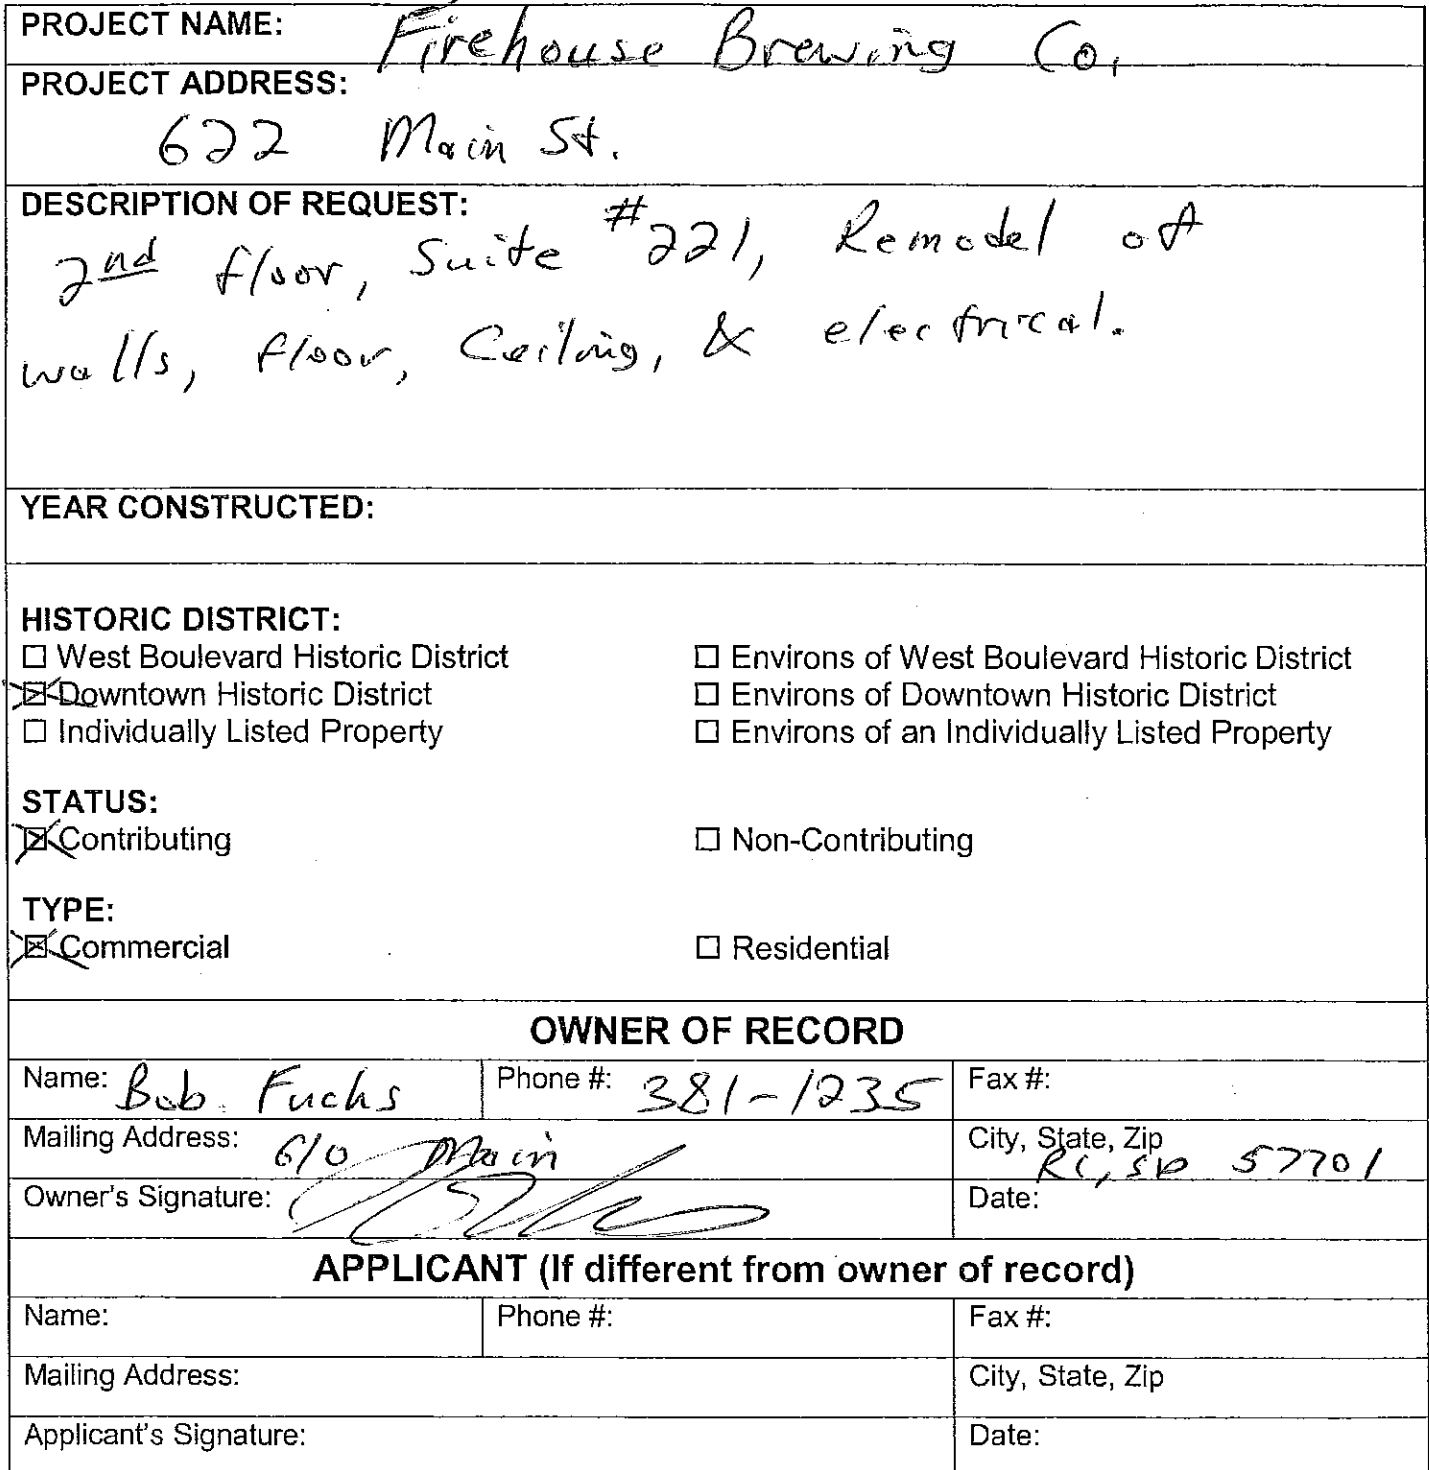 PROJECT NAME: Firehouse Brewing Co.
PROJECT ADDRESS:
622 Main St.
DESCRIPTION OF REQUEST:
2nd floor, Suite #221, Remodel of
walls, floor, Ceiling, & electrical.
YEAR CONSTRUCTED:
HISTORIC DISTRICT:
☐ West Boulevard Historic District ☐ Environs of West Boulevard Historic District
☒ Downtown Historic District ☐ Environs of Downtown Historic District
☐ Individually Listed Property ☐ Environs of an Individually Listed Property
STATUS:
☒ Contributing ☐ Non-Contributing
TYPE:
☒ Commercial ☐ Residential
OWNER OF RECORD
Name: Bob Fuchs Phone #: 381-1235 Fax #:
Mailing Address: 610 Main City, State, Zip RC, SD 57701
Owner's Signature: Date:
APPLICANT (If different from owner of record)
Name: Phone #: Fax #:
Mailing Address: City, State, Zip
Applicant's Signature: Date: